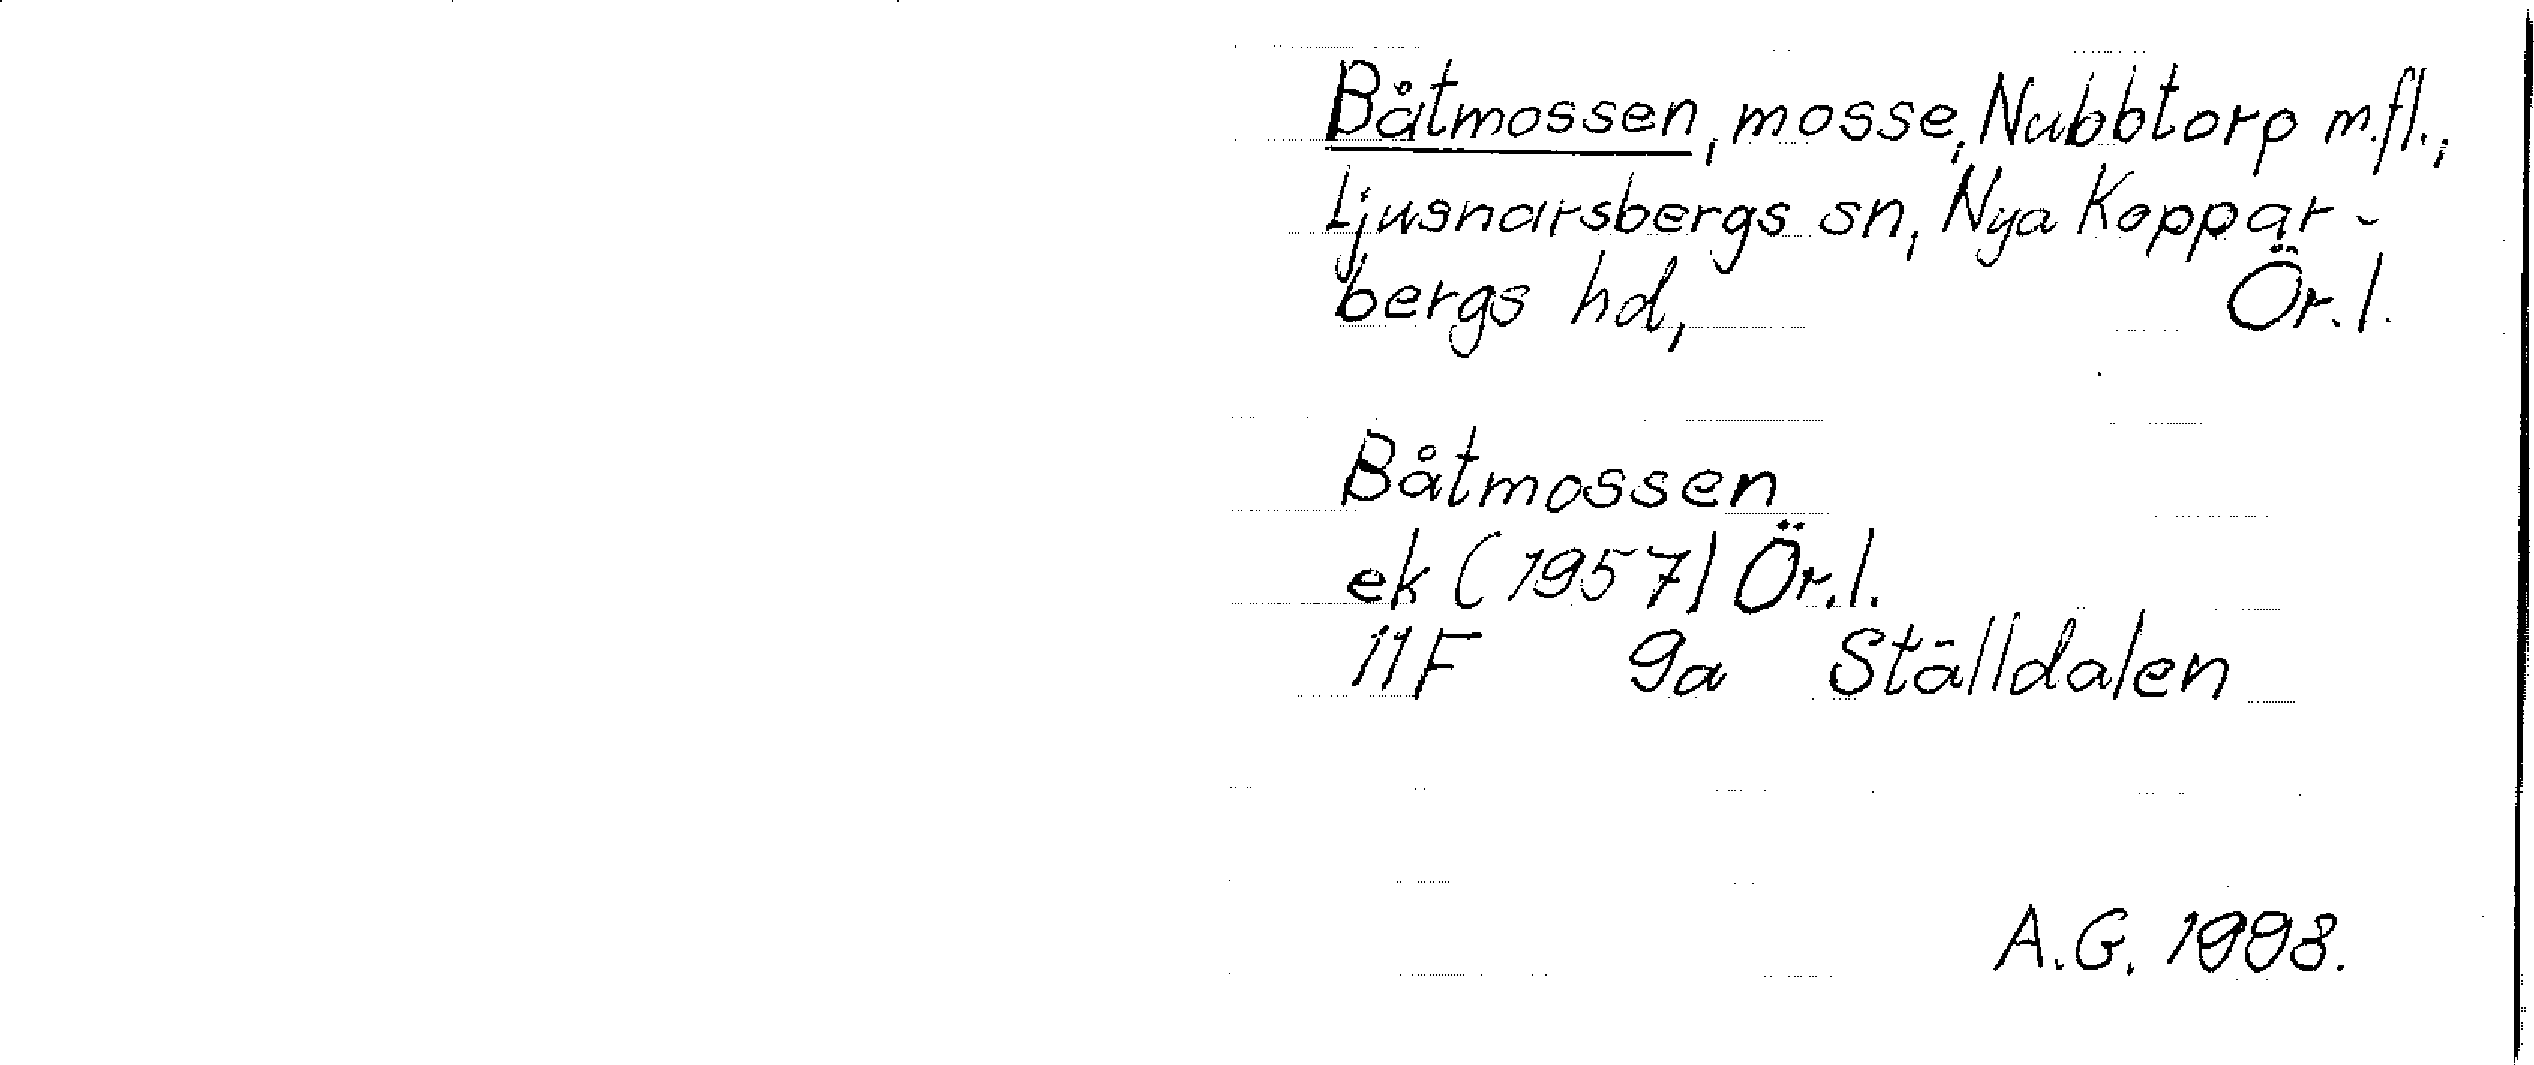 Båtmossen, mosse, Nubbtorp m.fl.,
Ljusnarsbergs sn, Nya Koppar-
bergs hd, Ör.l.
Båtmossen
ek (1957) Ör.l.
11F 9a Ställdalen
A.G. 1993.